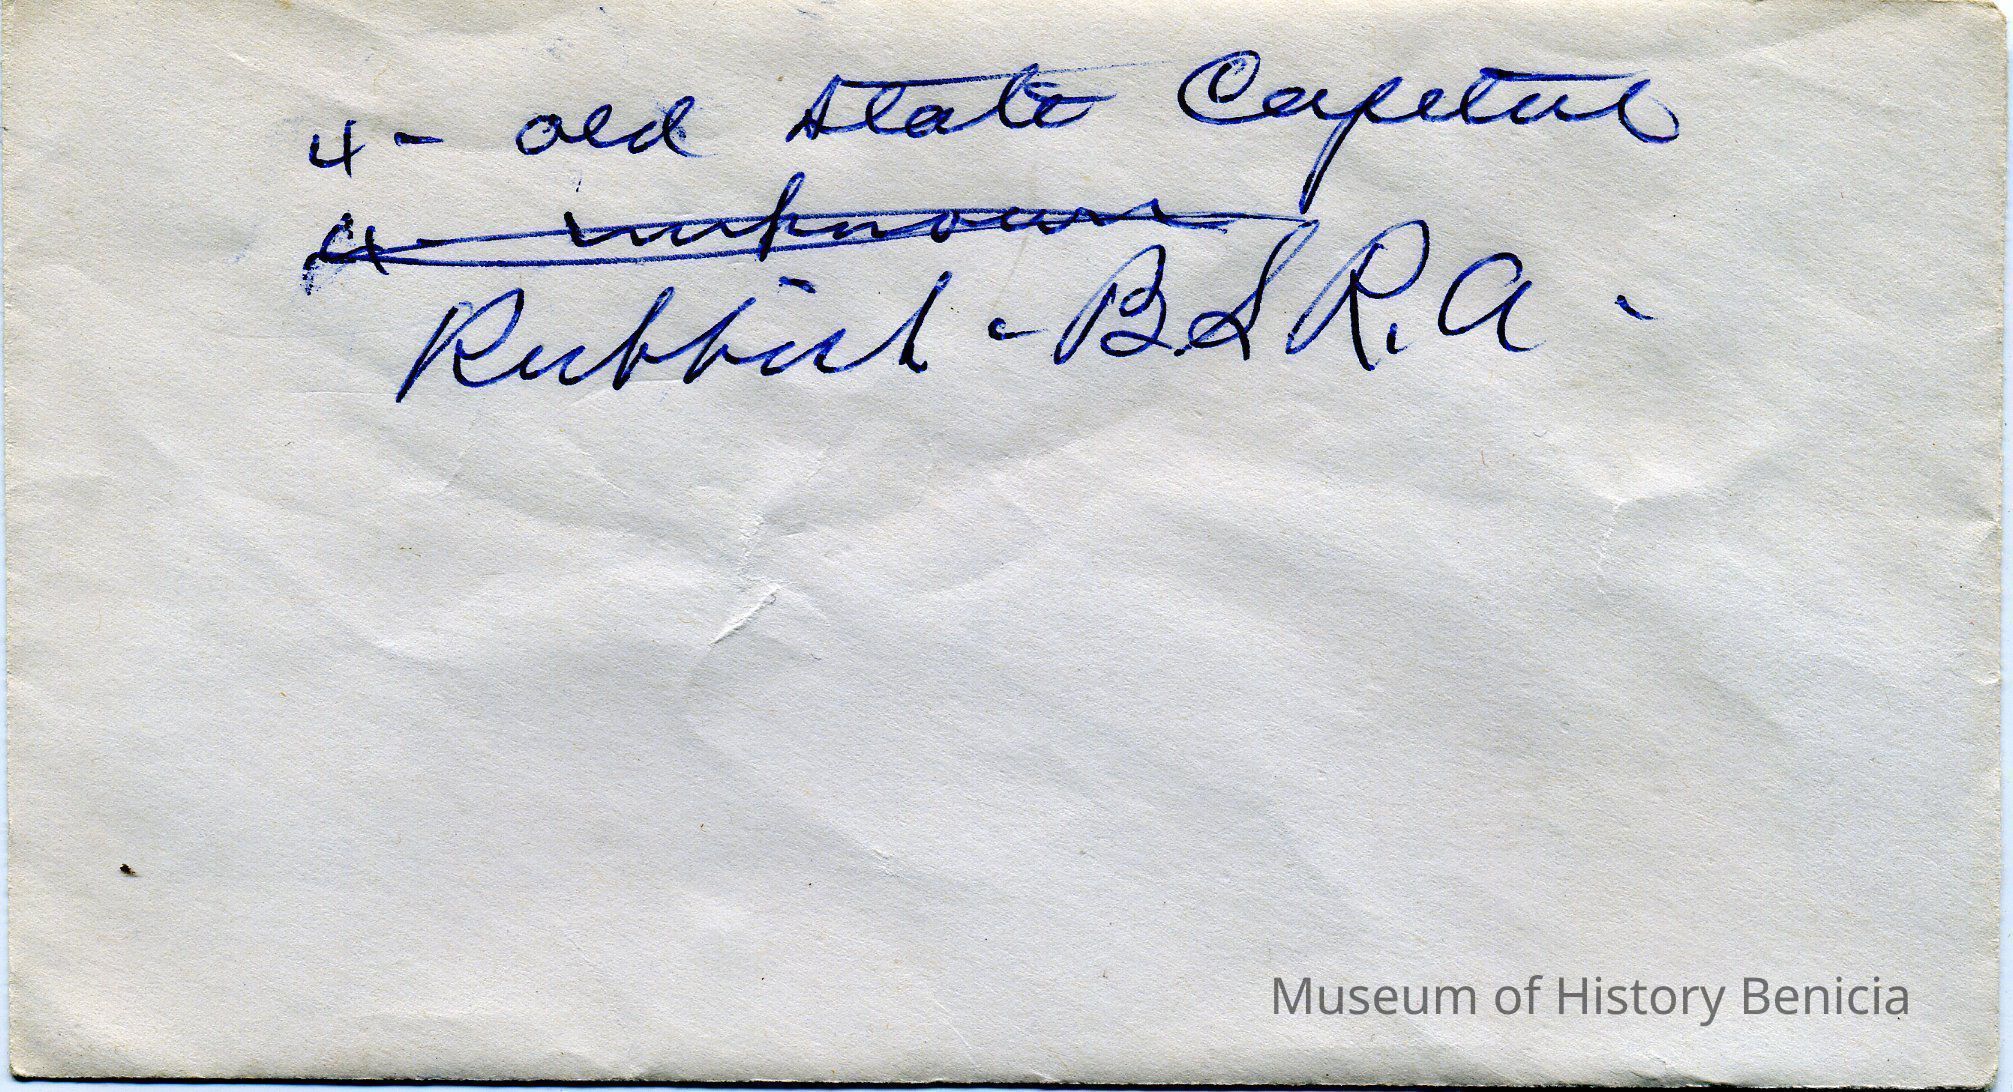 4 - old State Capitol
4 - unknown
Rubbish - B.S.R.A -
Museum of History Benicia